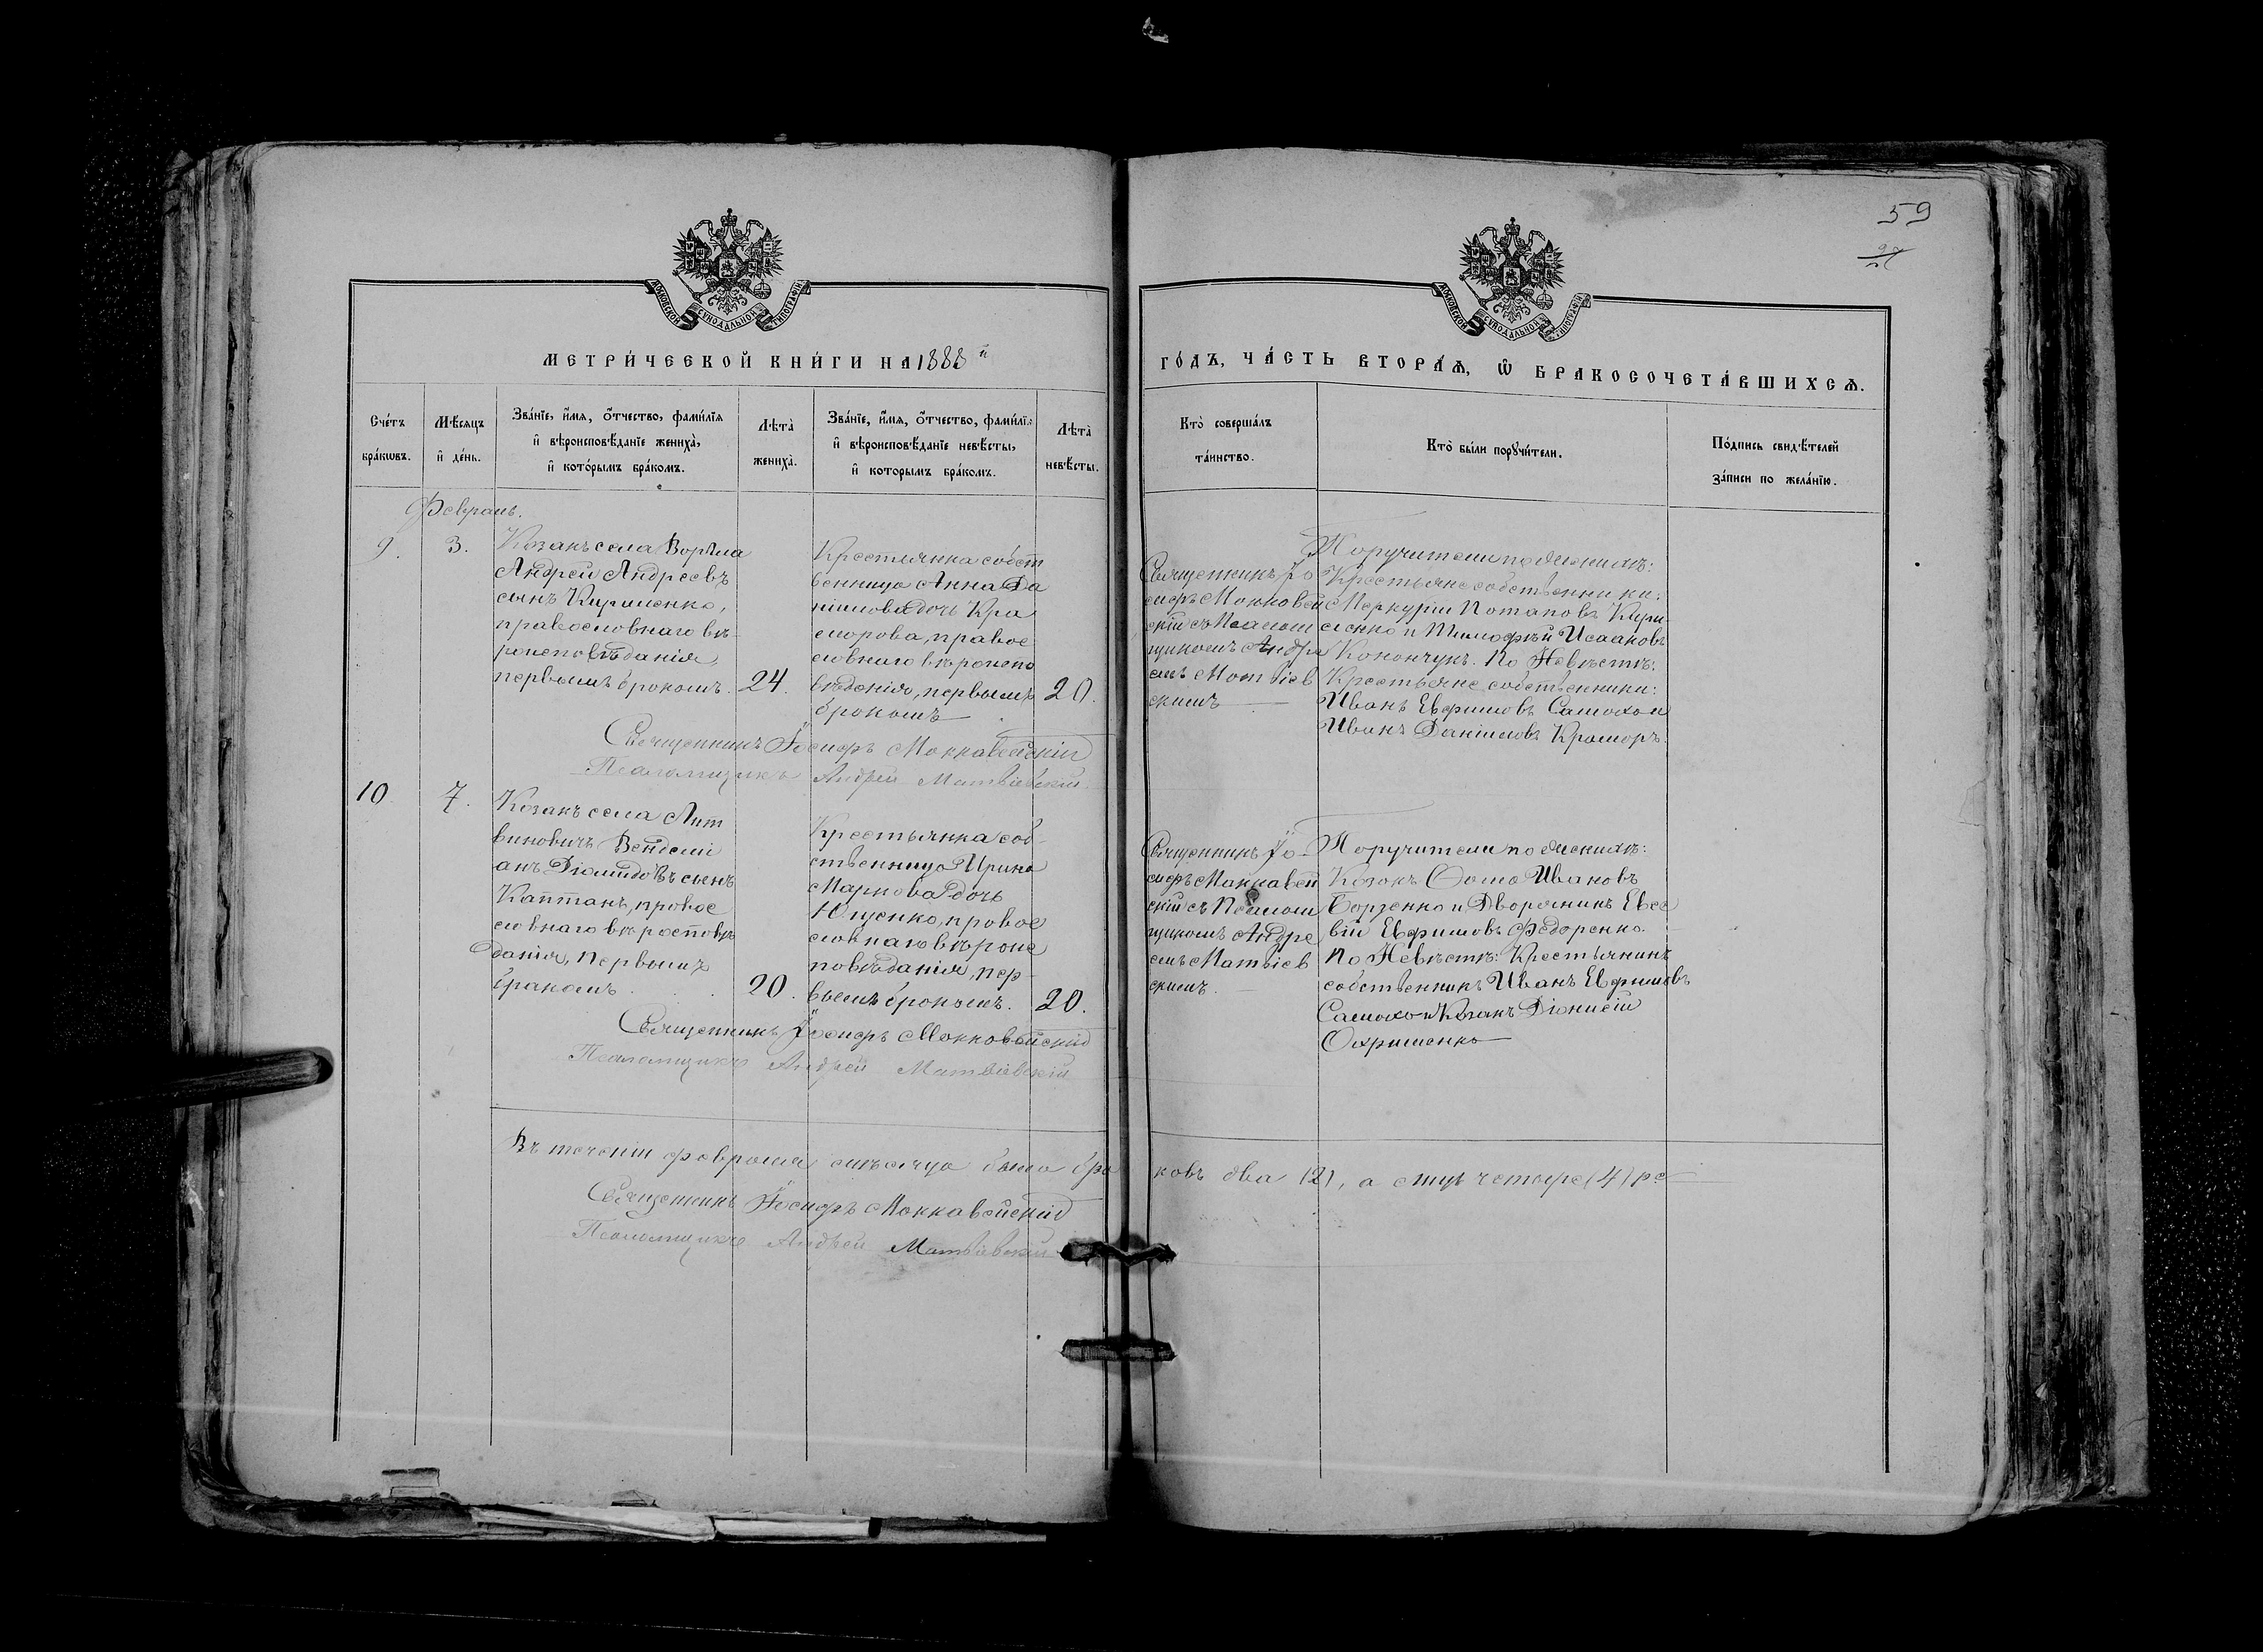 59
МОСКОВСКОЙ СѴНОДАЛЬНОЙ ТИПОГРАФІИ
МОСКОВСКОЙ СѴНОДАЛЬНОЙ ТИПОГРАФІИ
МЕТРИ́ЧЕСКОЙ КНИ́ГИ НА 1888 й
ГО́ДЪ, ЧА́СТЬ ВТОРА́Ѧ, Ѡ҆ БРАКОСОЧЕТА́ВШИХСѦ.
Сче́тъ
бра́ковъ.
Мѣ́сяцъ
и҆ де́нь.
Зва́нїе, и҆́мя, о҆́тчество, фами́лїя
и҆ вѣроисповѣ́данїе жениха̀,
и҆ кото́рымъ бра́комъ.
Лѣта̀
жениха̀.
Зва́нїе, и҆́мя, о҆́тчество, фами́лїя
и҆ вѣроисповѣ́данїе невѣ́сты,
и҆ которымъ бра́комъ.
Лѣта̀
невѣ́сты.
Кто̀ соверша́лъ
та́инство.
Кто̀ бы́ли порꙋчи́тели.
По́дпись свидѣ́телей
за́писи по жела́нїю.
Февраль.
9.
3.
Козакъ села Ворѣла
Андрей Андреевъ
сынъ Кириленко,
православнаго вѣ-
роисповѣданія,
первымъ бракомъ.
24.
Крестьянка собст
венница Анна Да
ніилова дочь Кра
морова, правос
лавнаго вѣроиспо
вѣданія, первымъ
бракомъ
20.
Священникъ Іо
сифъ Маккавей
скій съ Псалом
щикомъ Андре
емъ Матвіев
скимъ
Поручители по женихѣ:
Крестьяне собственники:
Меркурій Потаповъ Кири
ленко и Тимофей Исааковъ
Конончукъ. По Невѣстѣ:
Крестьяне собственники:
Иванъ Евфимовъ Самоха и
Иванъ Даніиловъ Краморъ.
Священникъ Іосифъ Маккавейскій
Псаломщикъ Андрей Матвіевскій
10
7.
Козакъ села Лит
виновичъ Вендемі
анъ Діомидовъ сынъ
Каптанъ, правос
лавнаго вѣроисповѣ
данія, первымъ
бракомъ
20.
Крестьянка соб-
ственница Ирина
Маркова дочь
Юценко, правос
лавнаго вѣроис
повѣданія, пер-
вымъ бракомъ.
20.
Священникъ Іо-
сифъ Маккавей
скій съ Псалом
щикомъ Андре
емъ Матвіев
скимъ.
Поручители по женихѣ:
Козакъ Фома Ивановъ
Борзенко и Дворянинъ Евсе
вій Евфимовъ Федоренко.
По Невѣстѣ: Крестьянинъ
собственникъ Иванъ Евфимовъ
Самоха и Козакъ Діонисій
Охрименко
Священникъ Іосифъ Маккавейскій
Псаломщикъ Андрей Матвіевскій
Въ теченіи февраля мѣсяца было бра ковъ два (2), а лицъ четыре (4)
Священникъ Іосифъ Маккавейскій
Псаломщикъ Андрей Матвіевскій